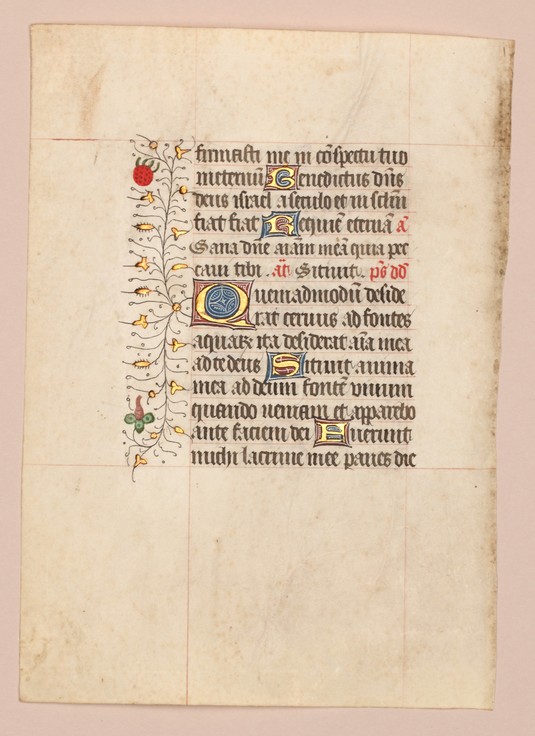 firmasti me in cōspectu tuo
ineternū Benedictus dn̄s
deus israel a seculo et in sclm̄
fiat fiat Requiē eternā ā
Sana dn̄e aīam meā quia pec
caui tibi . ān Sitiuit . ps̄ dd̄
Quemadmodū deside
rat ceruus ad fontes
aquaꝝ ita desiderat aīa mea
ad te deus Sitiuit anima
mea ad deum fontē viuum
quando ueniam et apparebo
ante faciem dei Fuerunt
michi lacrime mee panes die